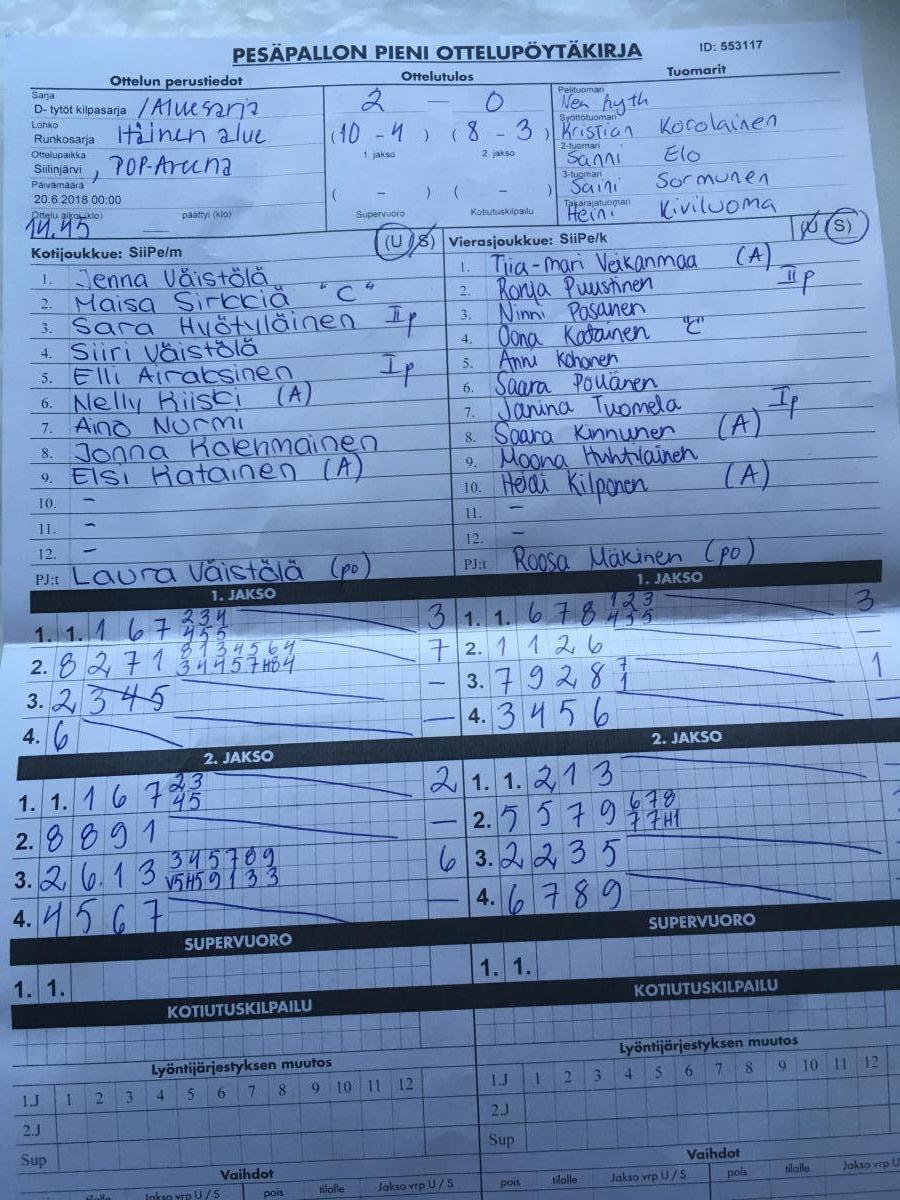 PESÄPALLON PIENI OTTELUPÖYTÄKIRJA
ID: 553117
Ottelun perustiedot
Ottelutulos
Tuomarit
Sarja
D- tytöt kilpasarja /Aluesarja
Lohko
Runkosarja Itäinen alue
Ottelupaikka
Siilinjärvi , POP-Areena
Päivämäärä
20.6.2018 00:00
Ottelu alkoi (klo) päättyi (klo)
14.45 —
2 — 0
(10 - 4) (8 - 3)
1. jakso 2. jakso
( - ) ( - )
Supervuoro Kotiutuskilpailu
Pelituomari
Nea
Syöttötuomari
Kristian Korolainen
2-tuomari
Sanni Elo
3-tuomari
Saini Sormunen
Takarajatuomari
Heini Kiviluoma
Kotijoukkue: SiiPe/m (U/S)
1. Jenna Väistölä
2. Maisa Sirkkiä "C"
3. Sara Hyötyläinen II p
4. Siiri Väistölä
5. Elli Airaksinen I p
6. Nelly Kiiski (A)
7. Aino Nurmi
8. Jonna Kolehmainen
9. Elsi Katainen (A)
10. -
11. -
12. -
PJ:t Laura Väistölä (po)
Vierasjoukkue: SiiPe/k (U/S)
1. Tiia-mari Veikanmaa (A)
2. Ronja Puustinen II p
3. Ninni Pasanen
4. Oona Katainen "C"
5. Anni Kohonen
6. Saara Pöllänen
7. Janina Tuomela I p
8. Saara Kinnunen (A)
9. Moona Huhtilainen
10. Heidi Kilponen (A)
11. -
12. -
PJ:t Roosa Mäkinen (po)
1. JAKSO
1. 1. 1 6 7 2 3 4 3
4 5 5
2. 8 2 7 1 8 1 3 4 5 6 4 7
3 4 4 5 7 H8 4
3. 2 3 4 5 —
4. 6 —
1. JAKSO
1. 1. 6 7 8 1 2 3 3
4 5 5
2. 1 1 2 6 —
3. 7 9 2 8 7 1
1
4. 3 4 5 6 —
2. JAKSO
1. 1. 1 6 7 2 3 2
4 5
2. 8 8 9 1 —
3. 2 6. 1 3 3 4 5 7 8 9 6
V5 H5 9 1 3 3
4. 4 5 6 7 —
2. JAKSO
1. 1. 2 1 3 —
2. 5 5 7 9 6 7 8
7 7 H1
3. 2 2 3 5
4. 6 7 8 9
SUPERVUORO
1. 1.
SUPERVUORO
1. 1.
KOTIUTUSKILPAILU
KOTIUTUSKILPAILU
Lyöntijärjestyksen muutos
1.J 1 2 3 4 5 6 7 8 9 10 11 12
2.J
Sup
Lyöntijärjestyksen muutos
1.J 1 2 3 4 5 6 7 8 9 10 11 12
2.J
Sup
Vaihdot
tilalle Jakso vrp U / S pois tilalle Jakso vrp U / S
Vaihdot
pois tilalle Jakso vrp U / S pois tilalle Jakso vrp U